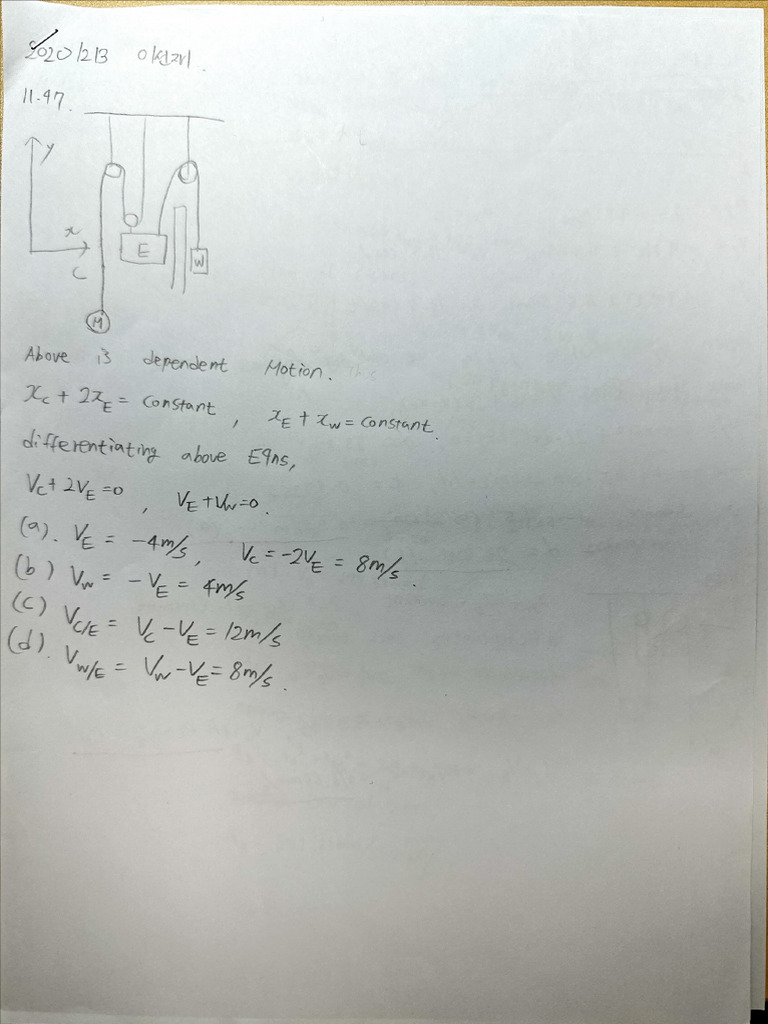 2020/2/3 이선재.
11.47.
y
x
C
E
W
M
Above is dependent Motion.
x_C + 2x_E = constant, x_E + x_W = constant.
differentiating above Eqns,
V_C + 2V_E = 0, V_E + V_W = 0.
(a). V_E = -4m/s, V_C = -2V_E = 8m/s.
(b) V_W = -V_E = 4m/s
(c) V_C/E = V_C - V_E = 12m/s
(d). V_W/E = V_W - V_E = 8m/s.